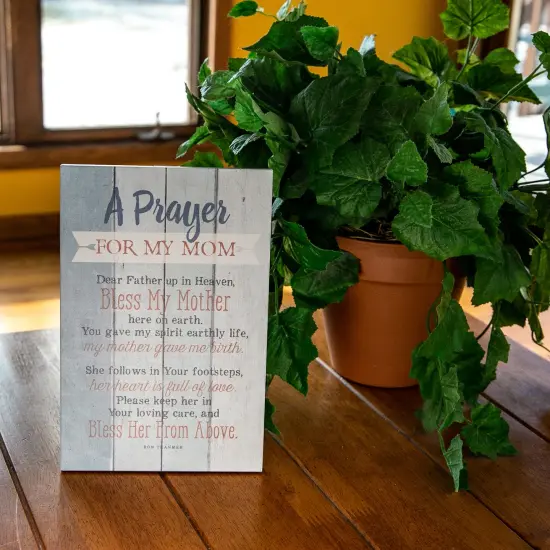 A Prayer
FOR MY MOM
Dear Father up in Heaven,
Bless My Mother
here on earth.
You gave my spirit earthly life,
my mother gave me birth.
She follows in Your footsteps,
her heart is full of love.
Please keep her in
Your loving care, and
Bless Her From Above.
RON TRANMER